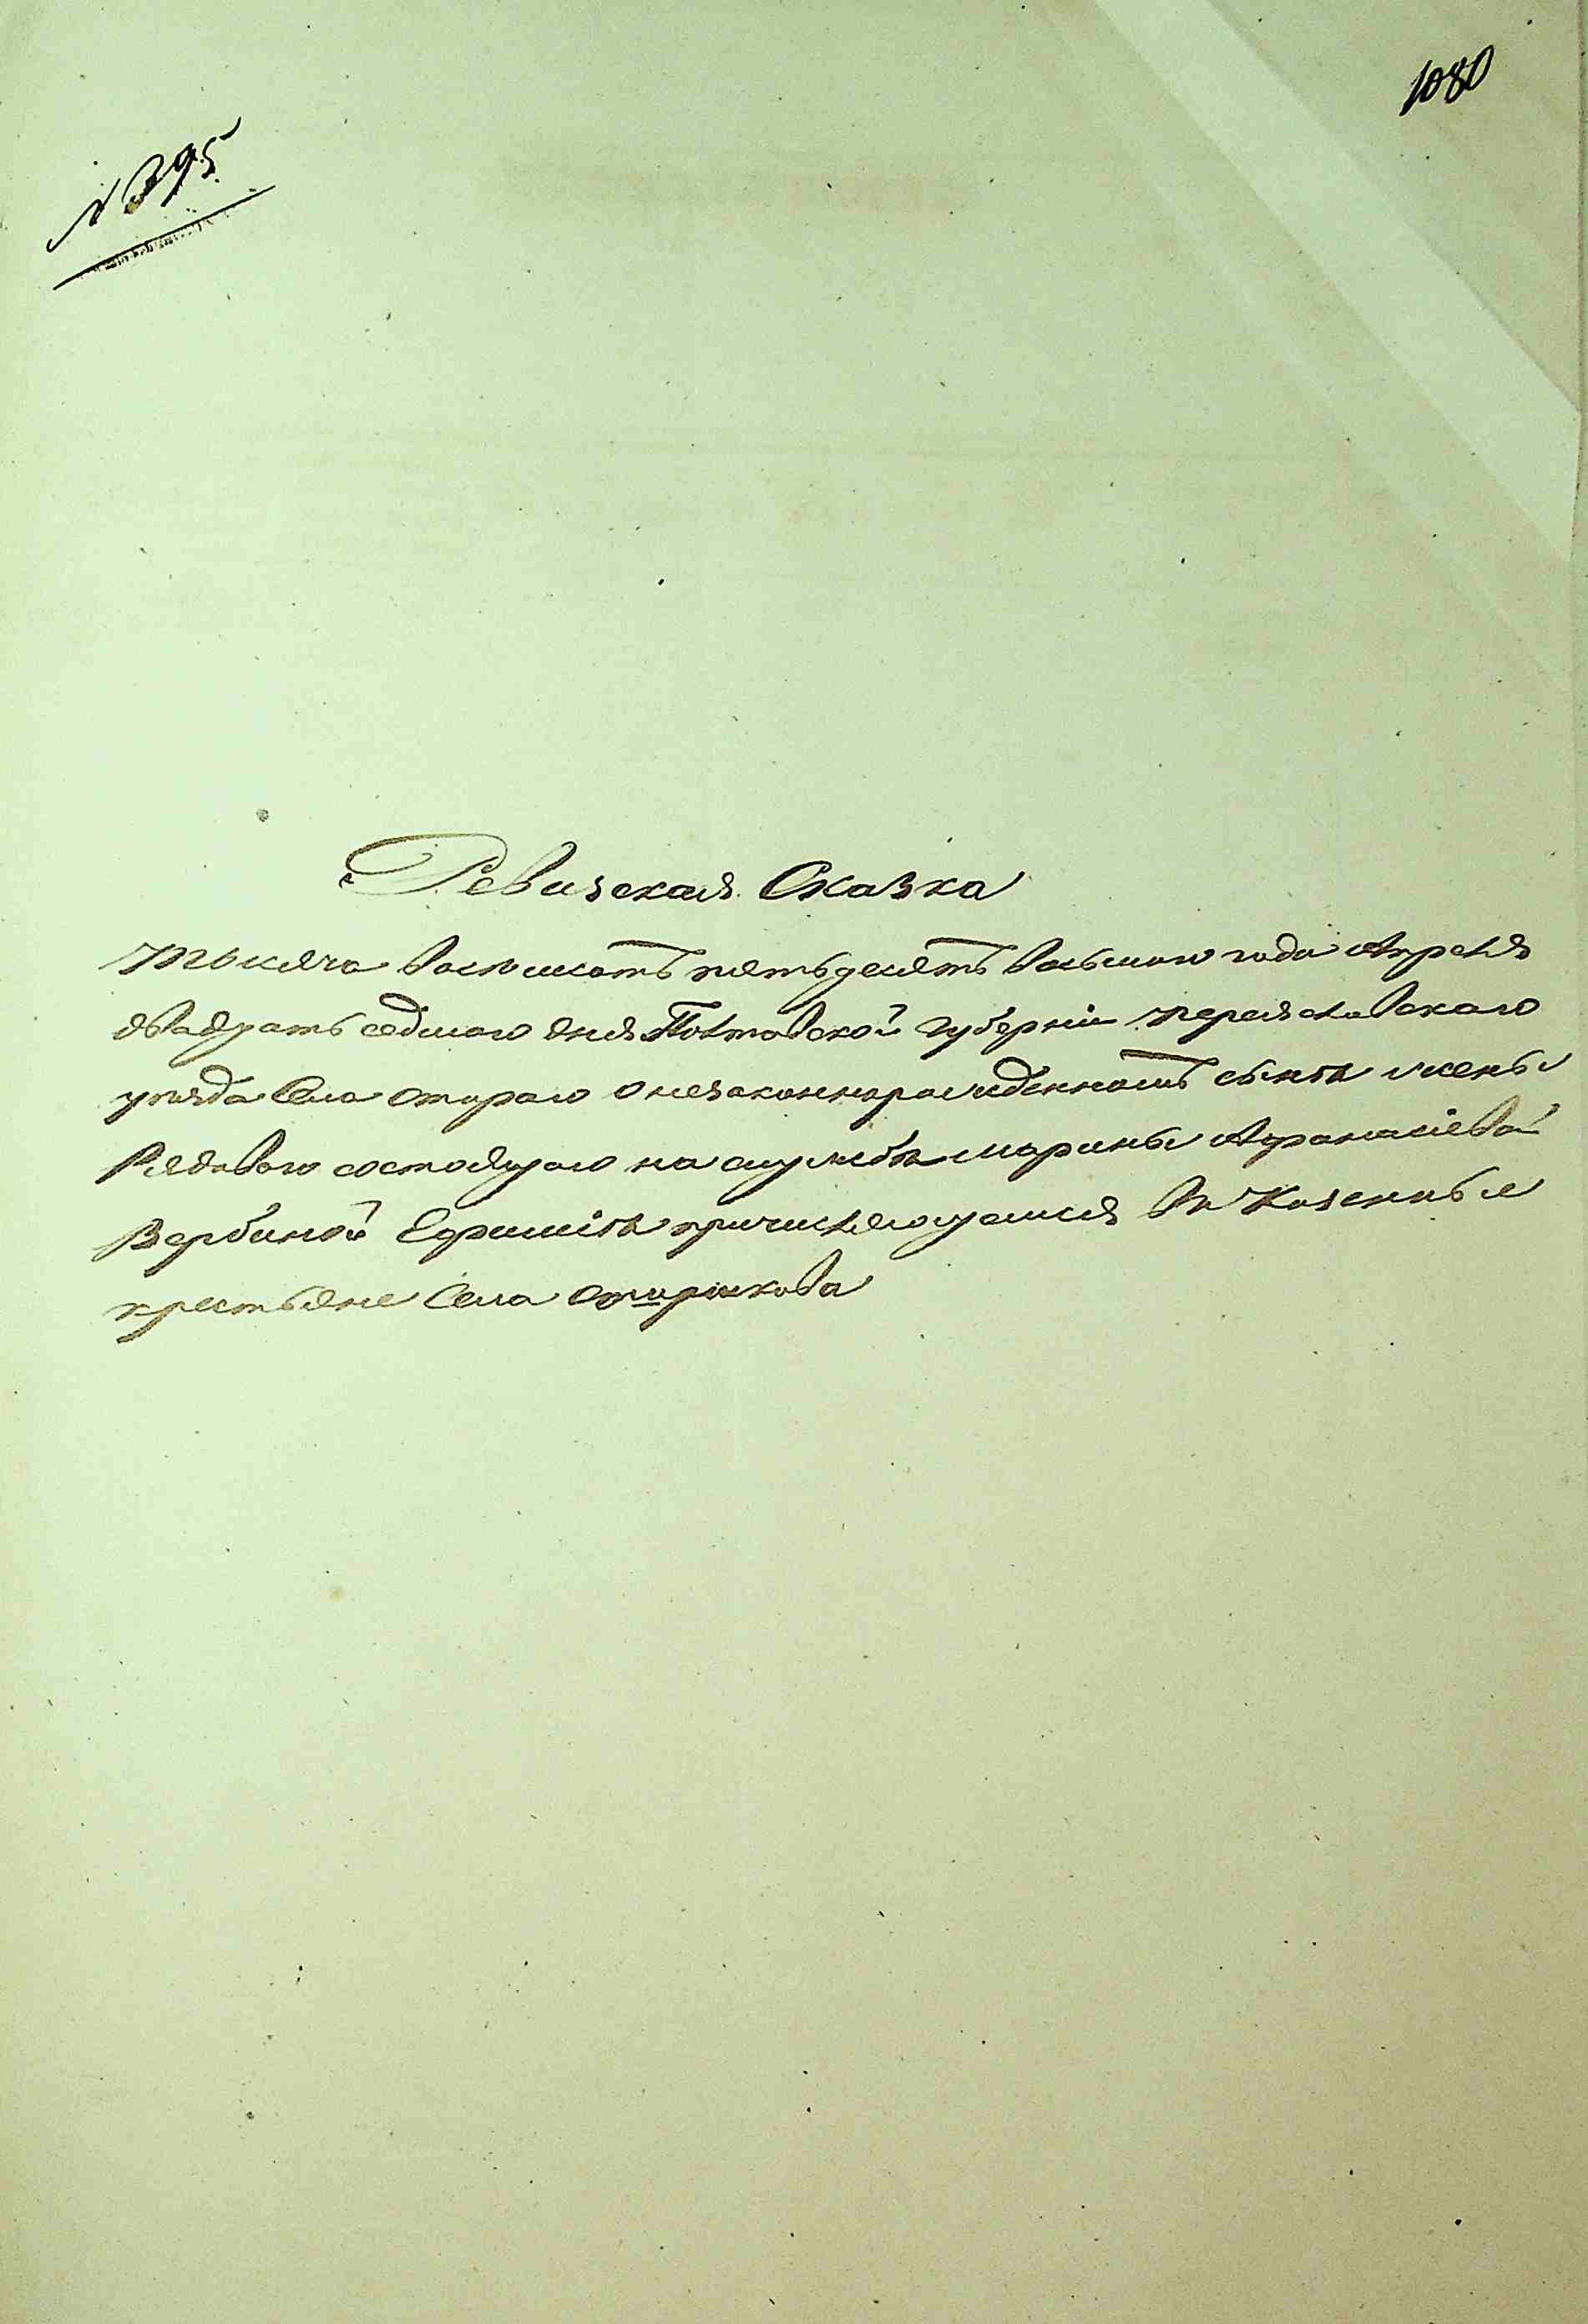 1080
№ 395
Ревизская Сказка
Тысяча восемсотъ пятьдесятъ восьмого года Апреля
двадцать седмаго дня Полтавской губерніи переяславскаго
уѣзда Села Стараго о незаконнорожденномъ сынѣ жены
Рядового состоящаго на службѣ Марины Афанасіевой
Вербиной Ефимѣ причисляющемся въ Казенные
крестьяне Села